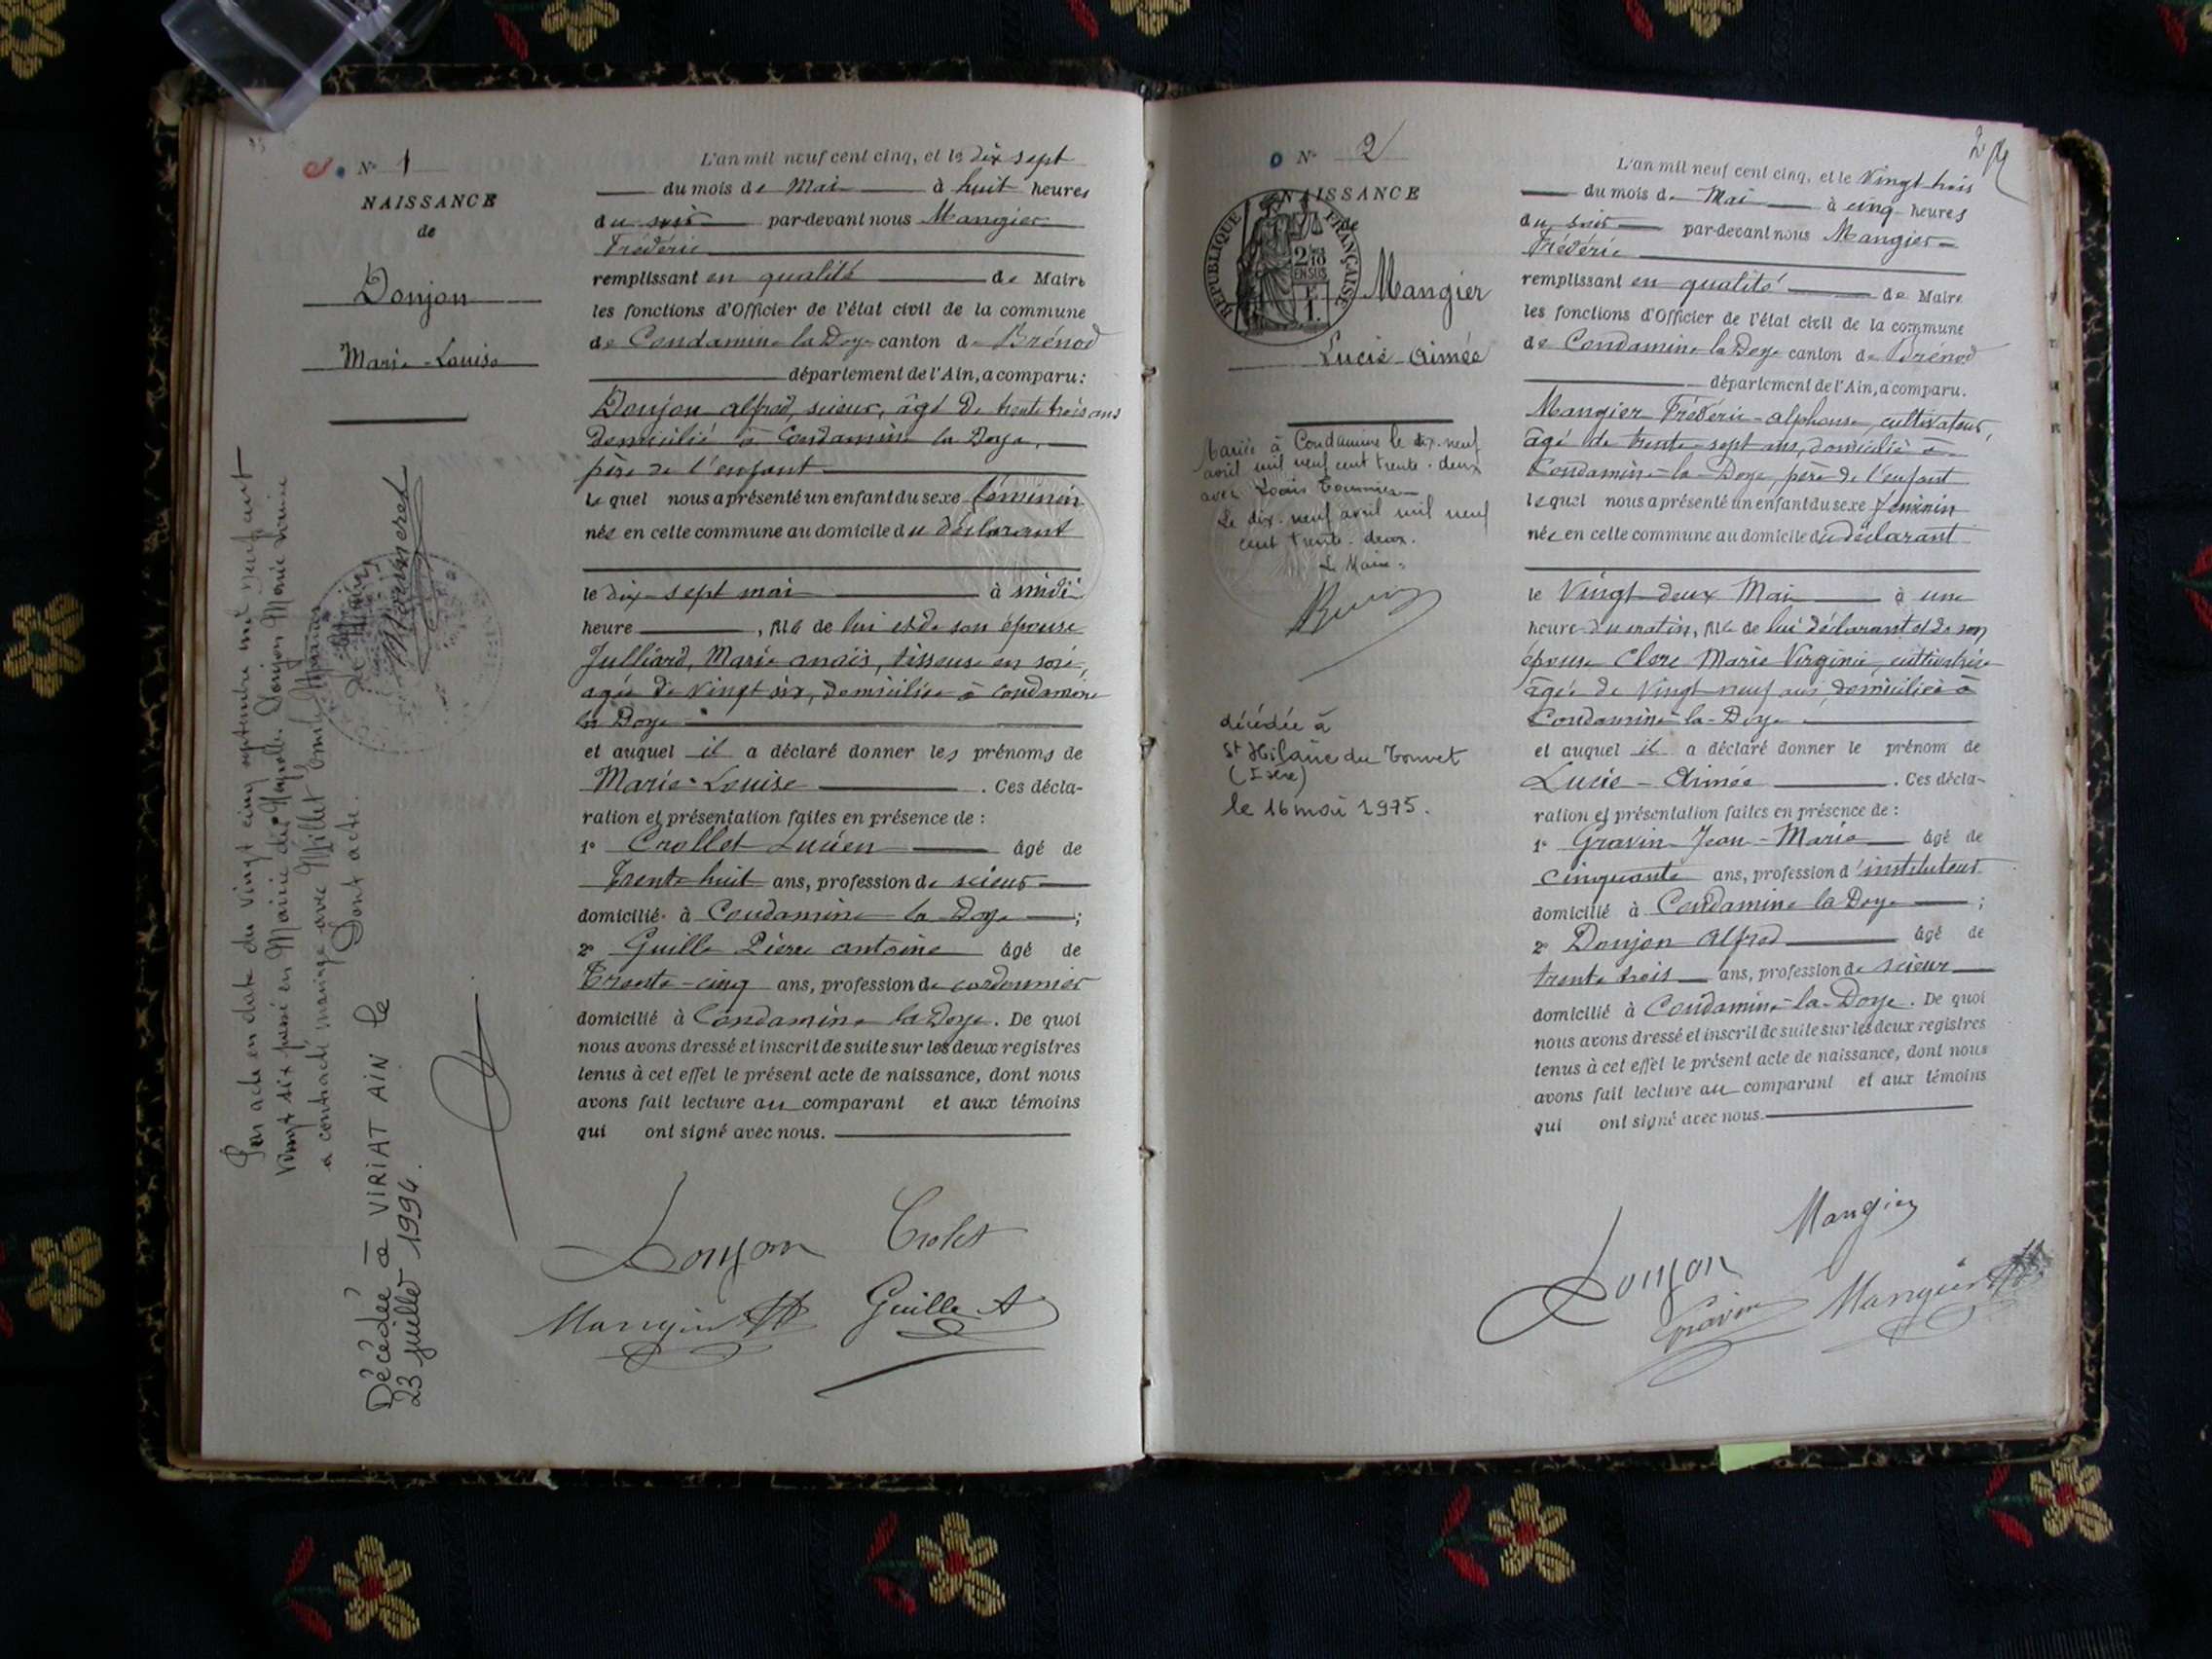 N° 1
NAISSANCE
de
Donjon
Marie-Louise
L'an mil neuf cent cinq, et le dix sept
du mois de Mai à huit heures
du soir par-devant nous Mangier
Frédéric
remplissant en qualité de Maire
les fonctions d'Officier de l'état civil de la commune
de Condamine la Doye canton de Brénod
département de l'Ain, a comparu:
Donjon alfred, scieur, âgé de trente trois ans
domicilié à Condamine la Doye,
père de l'enfant
lequel nous a présenté un enfant du sexe féminin
née en cette commune au domicile du déclarant
le dix-sept mai à midi
heure , fille de lui et de son épouse
Julliard, Marie anaïs, tisseuse en soie,
agée de vingt six, domiciliée à condamine
la Doye
et auquel il a déclaré donner les prénoms de
Marie-Louise . Ces décla-
ration et présentation faites en présence de :
1° Crollet Lucien âgé de
Trente huit ans, profession de scieur
domicilié à Condamine la Doye ;
2° Guille Pierre antoine âgé de
Trente-cinq ans, profession de cordonnier
domicilié à Condamine la Doye. De quoi
nous avons dressé et inscrit de suite sur les deux registres
tenus à cet effet le présent acte de naissance, dont nous
avons fait lecture au comparant et aux témoins
qui ont signé avec nous.
Donjon Crolet
Mangier Guille A
Par acte en date du vingt cinq septembre mil neuf cent
vingt six passé en Mairie de Donjon Marie Louise
a contracté mariage avec Millet
Dont acte.
Le Maire
Décédée à VIRIAT AIN le
23 juillet 1994.
N° 2
NAISSANCE
de
REPUBLIQUE FRANÇAISE
2/10 EN SUS
1 F.
Mangier
Lucie Aimée
Mariée à Condamine le dix-neuf
avril mil neuf cent trente-deux
avec Louis Tournier
Le dix-neuf avril mil neuf
cent trente-deux.
Le Maire
décédée à
St Hilaire du Touvet
(Isère)
le 16 mai 1975.
L'an mil neuf cent cinq, et le Vingt trois
du mois de Mai à cinq heures
du soir par-devant nous Mangier
Frédéric
remplissant en qualité de Maire
les fonctions d'Officier de l'état civil de la commune
de Condamine la Doye canton de Brénod
département de l'Ain, a comparu.
Mangier Frédéric-alphonse, cultivateur,
âgé de trente-sept ans, domicilié à
Condamine-la-Doye, père de l'enfant
lequel nous a présenté un enfant du sexe féminin
née en cette commune au domicile du déclarant
le Vingt-deux Mai à une
heure du matin, fille de lui déclarant et de son
épouse Clerc Marie Virginie, cultivatrice
âgée de Vingt-neuf ans, domiciliée à
Condamine-la-Doye
et auquel il a déclaré donner le prénom de
Lucie-Aimée . Ces décla-
ration et présentation faites en présence de :
1° Gravin Jean-Marie âgé de
cinquante ans, profession d'instituteur
domicilié à Condamine la Doye ;
2° Donjon Alfred âgé de
trente trois ans, profession de scieur
domicilié à Condamine-la-Doye. De quoi
nous avons dressé et inscrit de suite sur les deux registres
tenus à cet effet le présent acte de naissance, dont nous
avons fait lecture au comparant et aux témoins
qui ont signé avec nous.
Mangier
Donjon
Gravin Mangier